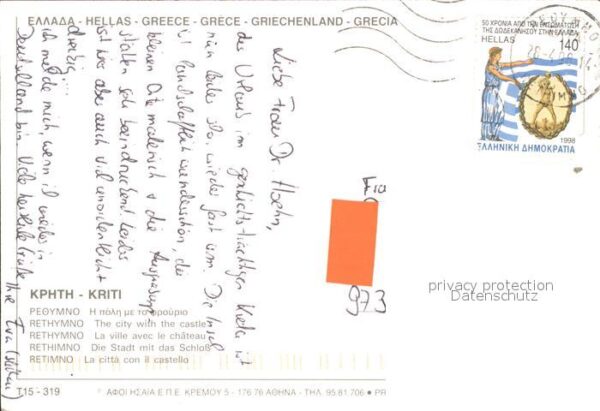 ΕΛΛΑΔΑ - HELLAS - GREECE - GRÈCE - GRIECHENLAND - GRECIA
50 ΧΡΟΝΙΑ ΑΠΟ ΤΗΝ ΕΝΣΩΜΑΤΩΣΗ
ΤΗΣ ΔΩΔΕΚΑΝΗΣΟΥ ΣΤΗΝ ΕΛΛΑΔΑ
HELLAS
140
1998
ΕΛΛΗΝΙΚΗ ΔΗΜΟΚΡΑΤΙΑ
Liebe Frau Dr. Hoehn,
der Urlaub im geschichtsträchtigen Kreta ist
nun leider schon wieder fast um. Die Insel
ist landschaftlich wunderschön, die
kleinen Orte malerisch + die Ausgrabungs-
stätten sehr beeindruckend. Leider
ist hier aber auch viel unordentlich +
dreckig...
Ich melde mich, wenn ich wieder in
Deutschland bin. Viele herzliche Grüße
Ihre Eva
Fra
973
privacy protection
Datenschutz
ΚΡΗΤΗ - KRITI
ΡΕΘΥΜΝΟ Η πόλη με το φρούριο
RETHYMNO The city with the castle
RETHYMNO La ville avec le château
RETHIMNO Die Stadt mit das Schloß
RETIMNO La città con il castello
T15 - 319
© ΑΦΟΙ ΗΣΑΪΑ Ε.Π.Ε. ΚΡΕΜΟΥ 5 - 176 76 ΑΘΗΝΑ - ΤΗΛ. 95.81.706 • PR